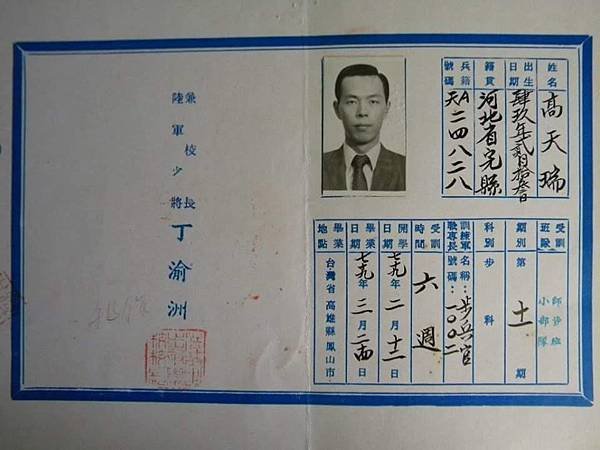 姓名 高天瑞
出生日期 肆玖年貳月拾叁日
籍貫 河北省完縣
兵籍號碼 天A二四八二八
受訓班隊 師資班 小部隊
期別 第 十一 期
科別 步 科
訓練軍職專長 名稱：步兵官 號碼：一〇〇二
受訓時間 六週
開學日期 七九年 二月 十二日
畢業日期 七九年 三月 二四日
畢業地點 台灣省高雄縣鳳山市
兼校長
陸軍少將
丁渝洲